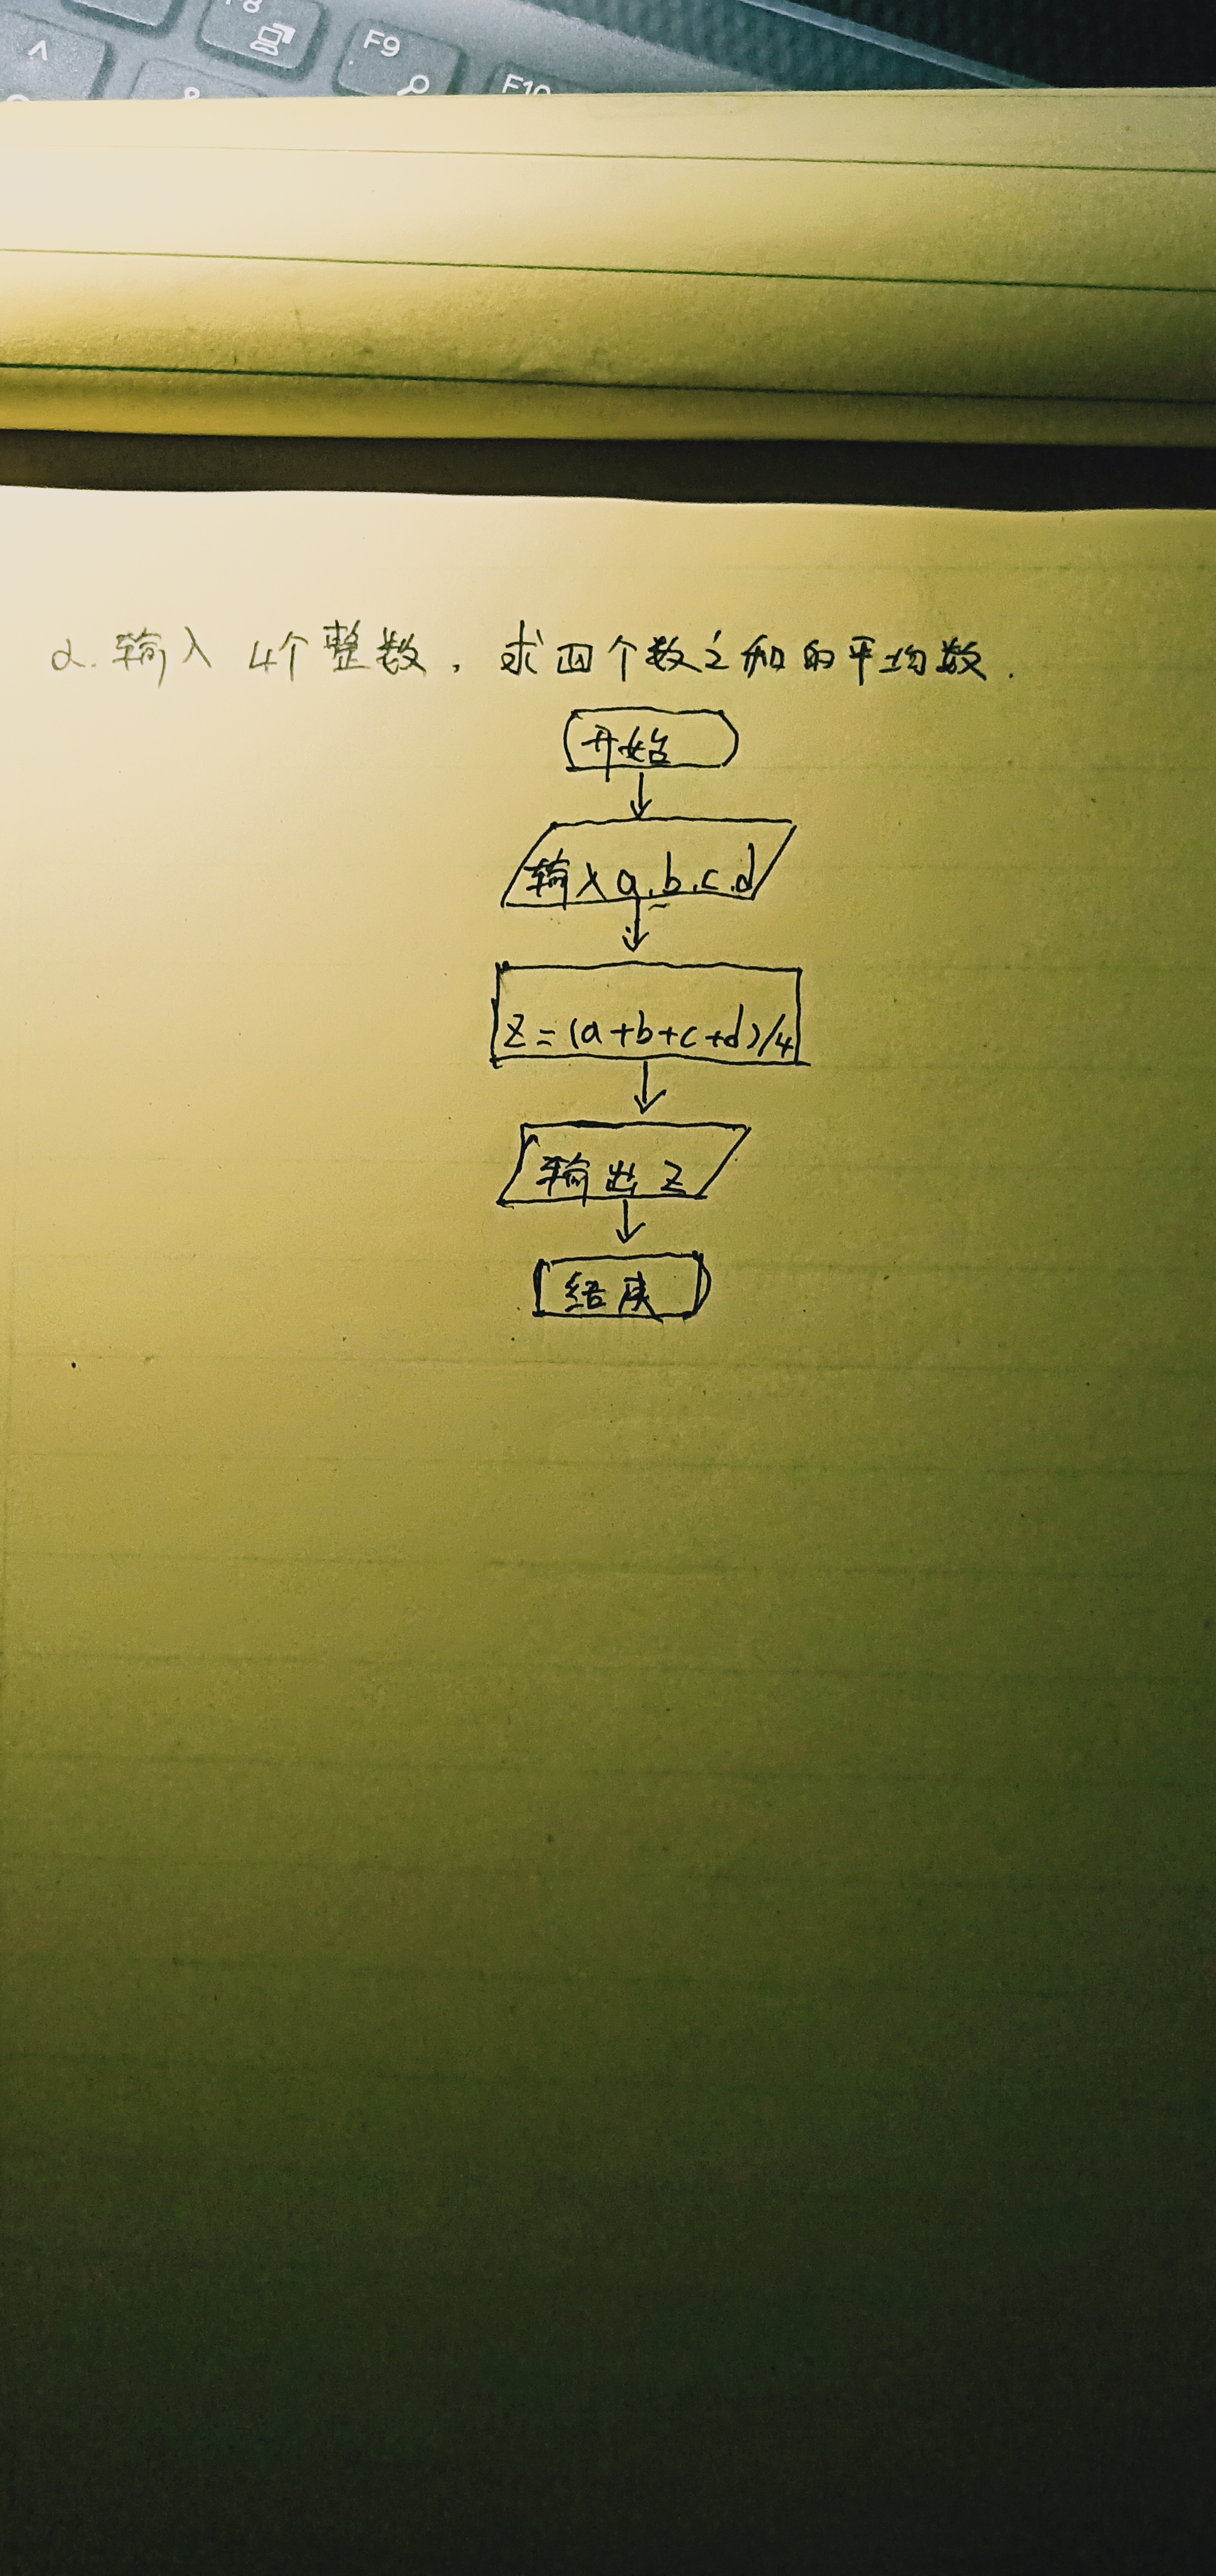 F8
F9
F10
2. 输入 4个整数, 求四个数之和的平均数.
开始
输入 a.b.c.d
Z=(a+b+c+d)/4
输出 Z
结束